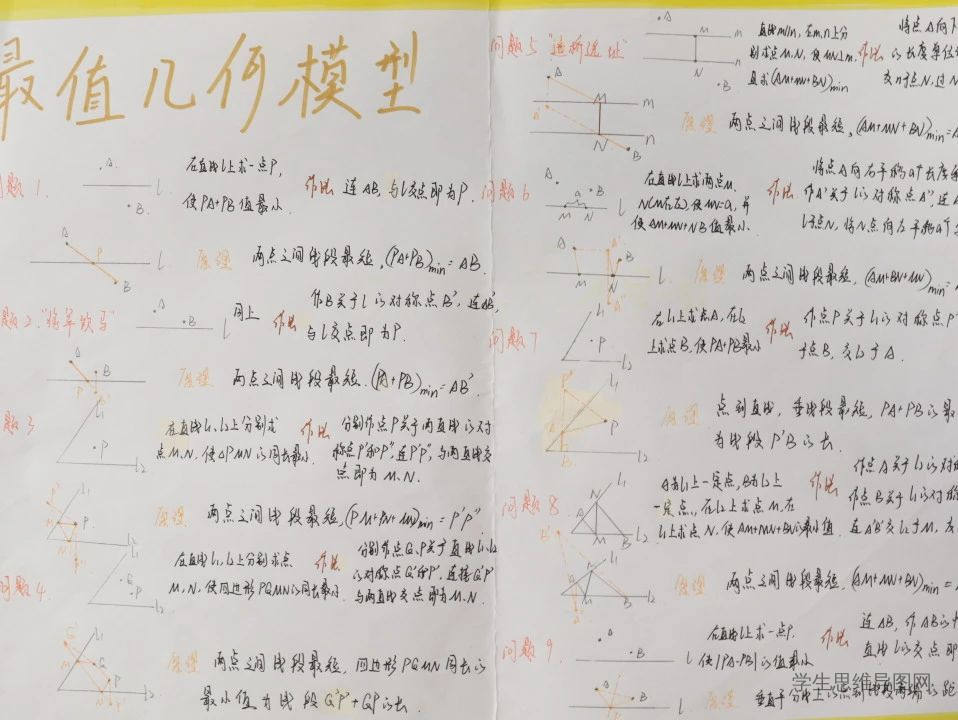 最值几何模型
问题1.
A
l
B
在直线l上求一点P,
使PA+PB值最小
作法
连AB,与l交点即为P.
A
P
B
原理
两点之间线段最短,(PA+PB)min=AB.
问题2."将军饮马"
A
B
l
同上
作法
作B关于l的对称点B',连AB',
与l交点即为P.
A
B
P
原理
两点之间线段最短.(PA+PB)min=AB'
问题3
l1
P
l2
在直线l1、l2上分别求
点M、N,使△PMN的周长最小.
作法
分别作点P关于两直线的对
称点P'和P",连P'P",与两直线交
点即为M、N.
原理
两点之间线段最短,(PM+PN+MN)min=P'P"
问题4
l1
Q
P
l2
在直线l1、l2上分别求点
M、N,使四边形PQMN的周长最小
作法
分别作点Q、P关于直线l1、l2
的对称点Q'和P',连接Q'P'
与两直线交点即为M、N.
原理
两点之间线段最短,四边形PQMN周长的
最小值为线段Q'P'+QP的长
问题5"造桥选址"
A
M
m
N
n
B
直线m//n,在m、n上分
别求点M、N,使MN⊥m,
且求(AM+MN+BN)min
作法
将点A向下
的长度单位
交n于点N,过N
A
A'
M
m
N
n
B
原理
两点之间线段最短,(AM+MN+BN)min=A
问题6
A
B
a
M N l
在直线l上求两点M、
N(M在左),使MN=a,并
使AM+MN+NB值最小.
作法
将点A向右平移a个长度单
作A'关于l的对称点A",连A
l于点N,将N点向左平移a个
原理
两点之间线段最短,(AM+BN+MN)
问题7
l1
P
l2
在l1上求点A,在l2
上求点B,使PA+PB最小
作法
作点P关于l1的对称点P'
于点B,交l1于A.
原理
点到直线,垂线段最短,PA+PB的最
为线段P'B的长
问题8
l1
N
A
M
B
l2
A为l1上一定点,B为l2上
一定点,在l2上求点M,在
l1上求点N,使AM+MN+BN的最小值
作法
作点A关于l2的对称
作点B关于l1的对称
连A'B'交l2于M,交
原理
两点之间线段最短,(AM+MN+BN)min=
问题9
A
B
l
在直线l上求一点P,
使|PA-PB|的值最小
作法
连AB,作AB的中
直线l的交点即
A
B
l
原理
学生思维导图网